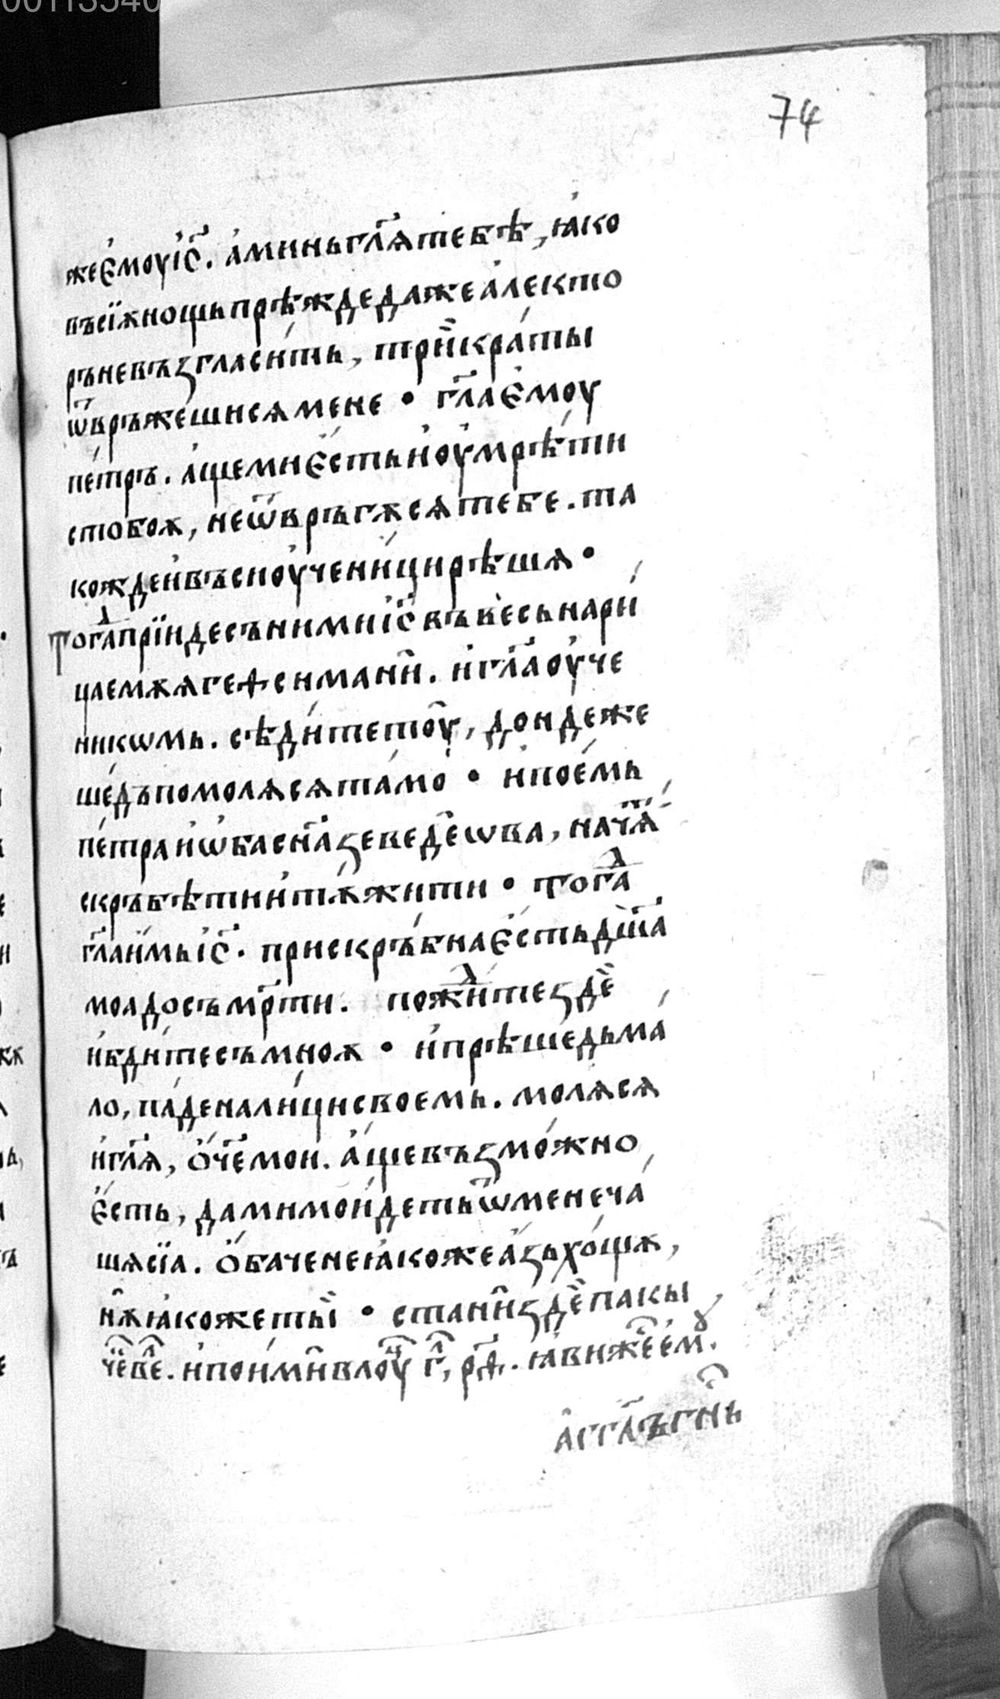 00113540
74
же є҆моу і҆с҃. а҆минь гл҃ѧ тебѣ, ꙗко
въ сїѫ нощь прѣжде даже а҆лекто
ръ не възгласи́ть, три̏ кра́ты
ѿвръже́ши сѧ мене • гл҃а є҆моу
пе́тръ. а҆ще ми є҆сть и҆ оу҆мрѣ́ти
с тобоѫ, не ѿвръгѫ сѧ тебе. та
кожде и҆ въси оу҆чени́ци рѣ́шѧ •
Тог҃да прїиде съ ними і҆с҃ въ ве̏сь нари́
цаемѫѧ геѳсимани̑. и҆ гл҃а оу҆че
никѡмь. сѣди́те тоу̑, дон деже
ше́дъ помолѧ сѧ та́мо • и҆ пое́мь
пе́тра и҆ ѡ҆ба сн҃а зеведе̑ѡва, начѧ́т
скръбѣти и҆ тѫжи́ти • Тог҃да
гл҃а и҆мь і҆с҃. прискръ́бна є҆сть дш҃а
моа до съмр҃ти. пожди́те зде̏
и҆ бди́те съ мноѫ • и҆ прѣшедь ма́
ло, па́де на ли́ци своемь. молѧ сѧ
и҆ гл҃ѧ, ѻ҆ч҃е мои. а҆ще възмо́жно
є҆сть, да мимои́деть ѿ мене ча́
шѧ сїа. ѻ҆баче не ꙗкоже а҆зь хо́щѫ,
нѫ̏ ꙗкоже ты̏ • стани̑ зде̏ пакы
че̑ве̑. и҆ поими̑ в лоуц҃ г҃, рд҃. ꙗви же є҆моу.
а҆гг҃лъ гн҃ь